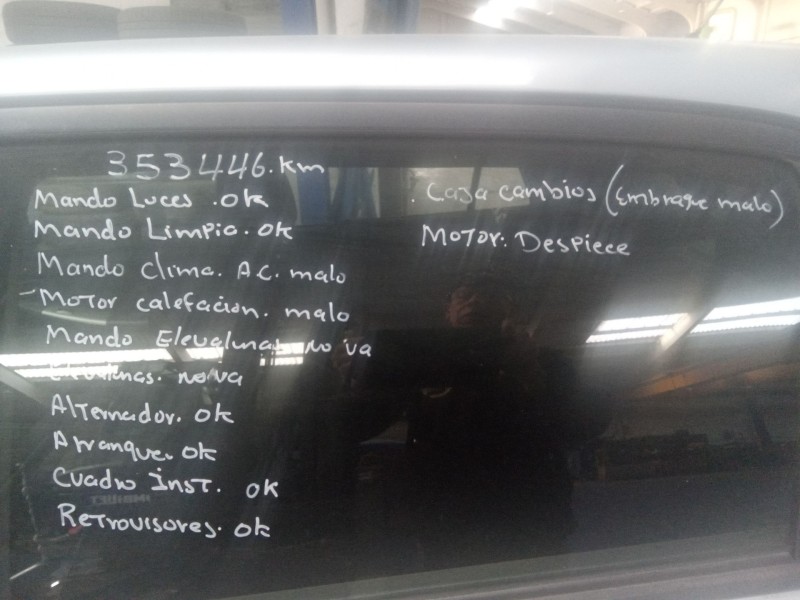 353446.km
Mando Luces .ok
Mando Limpia. ok
Mando clima. A.C. malo
-Motor calefacion. malo
Mando Elevalunas. no va
Elevalunas. no va
Alternador. ok
Arranque. ok
Cuadro inst. ok
Retrovisores. ok
. Caja cambios (Embrague malo)
Motor: Despiece